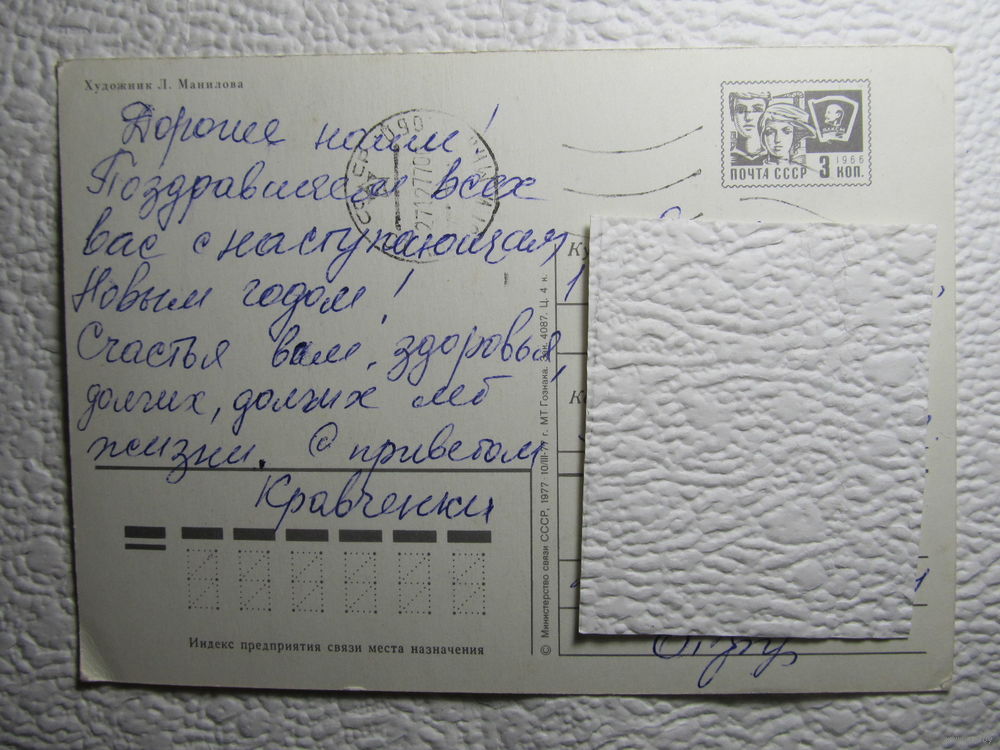 Художник Л. Манилова
Дорогие наши!
Поздравляем всех
вас с наступающим
Новым годом!
Счастья вам, здоровья
долгих, долгих лет
жизни. С приветом
Кравченки
Индекс предприятия связи места назначения
© Министерство связи СССР, 1977. 10/III-77 г. МТ Гознака. Зак. 4087. Ц. 4 к.
1966
ПОЧТА СССР 3 КОП.
Ку